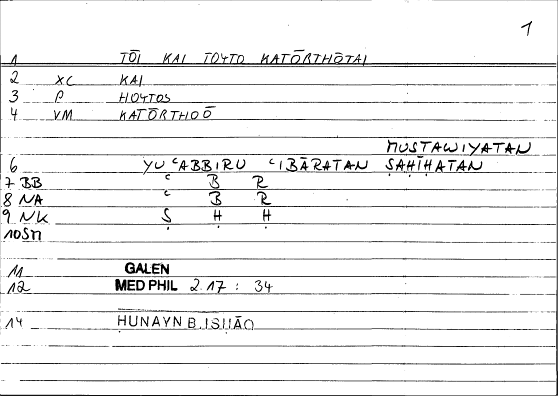 1
1 TŌI KAI TOYTO KATŌRTHŌTAI
2 XC KAI
3 P HOYTOS
4 VM KATŌRTHOŌ
MUSTAWIYATAN
6 YUʿABBIRU ʿIBĀRATAN ṢAḤĪḤATAN
7 BB ʿ B R
8 NA ʿ B R
9 NK Ṣ Ḥ Ḥ
10
11 GALEN
12 MED PHIL 2.17 : 34
14 HUNAYN B. ISḤĀQ